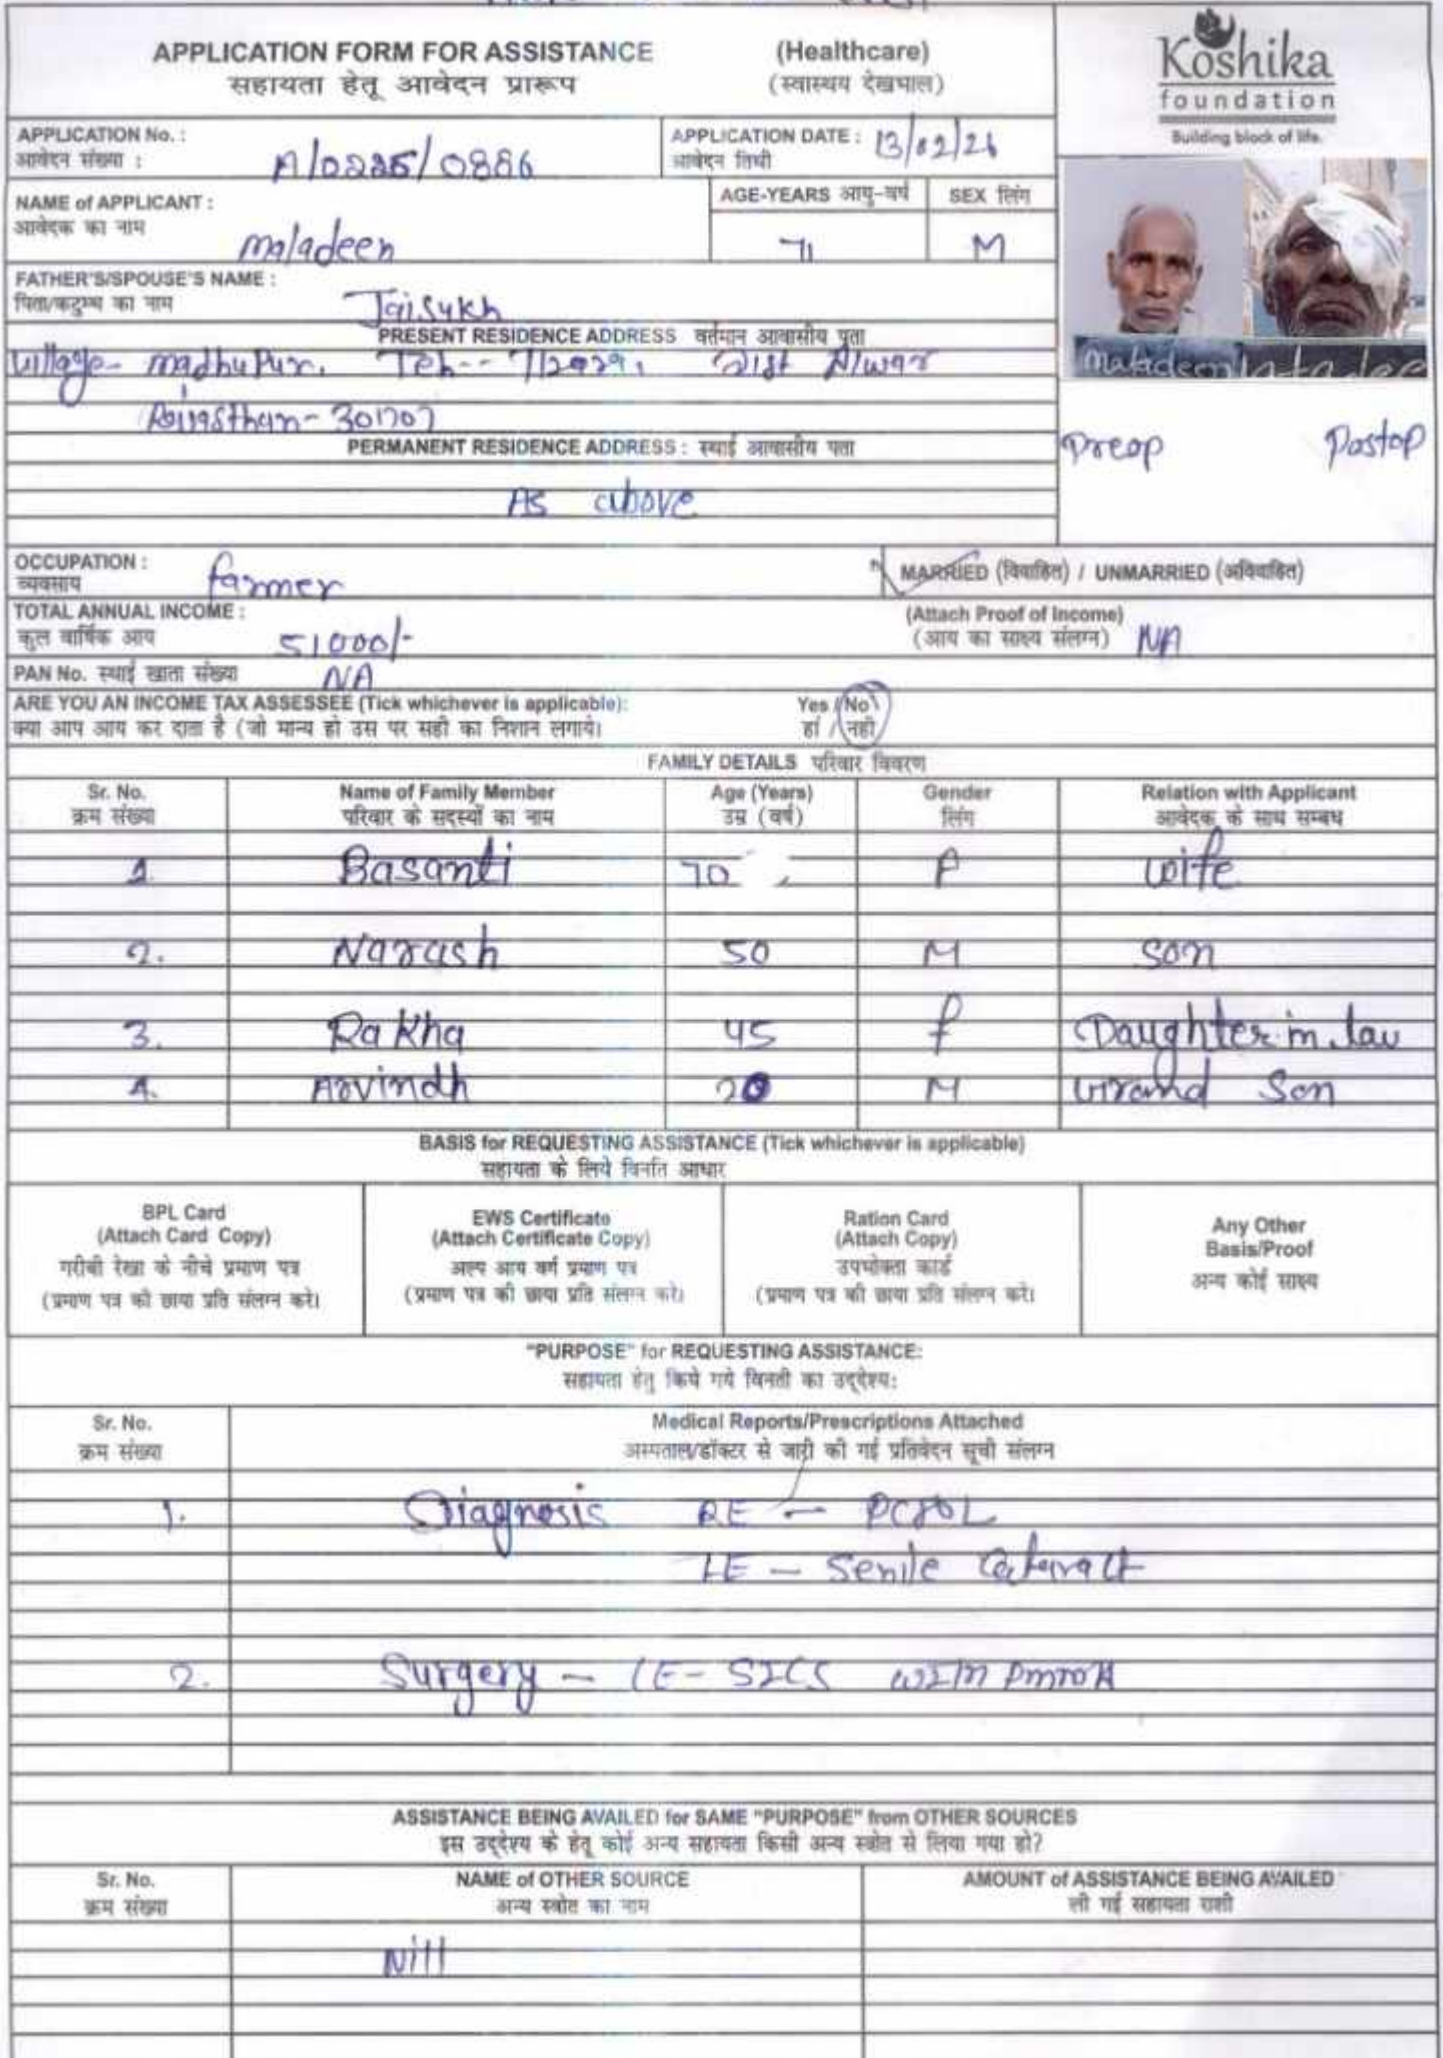 APPLICATION FORM FOR ASSISTANCE (Healthcare)
सहायता हेतू आवेदन प्रारूप (स्वास्थय देखभाल)
Koshika
foundation
Building block of life.
APPLICATION No. : A/0225/0886
आवेदन संख्या :
APPLICATION DATE : 13/02/26
आवेदन तिथी
NAME of APPLICANT :
आवेदक का नाम
Maladeen
AGE-YEARS आयु-वर्ष SEX लिंग
71 M
FATHER'S/SPOUSE'S NAME :
पिता/कटुम्ब का नाम
Jaisukh
PRESENT RESIDENCE ADDRESS वर्तमान आवासीय पता
village- madhupur, Teh-- Dist Alwar
Rajasthan- 301707
PERMANENT RESIDENCE ADDRESS : स्थाई आवासीय पता
As above
Preop Postop
OCCUPATION : farmer
व्यवसाय
MARRIED (विवाहित) / UNMARRIED (अविवाहित)
TOTAL ANNUAL INCOME :
कुल वार्षिक आय 51000/-
(Attach Proof of Income)
(आय का साक्ष्य संलग्न) NA
PAN No. स्थाई खाता संख्या NA
ARE YOU AN INCOME TAX ASSESSEE (Tick whichever is applicable): Yes / No
क्या आप आय कर दाता है (जो मान्य हो उस पर सही का निशान लगाये। हां / नही
FAMILY DETAILS परिवार विवरण
Sr. No. Name of Family Member Age (Years) Gender Relation with Applicant
क्रम संख्या परिवार के सदस्यों का नाम उम्र (वर्ष) लिंग आवेदक के साथ सम्बध
1. Basanti 70 F wife
2. Narash 50 M son
3. Rakha 45 f Daughter in. law
4. Arvindh 20 M Grand Son
BASIS for REQUESTING ASSISTANCE (Tick whichever is applicable)
सहायता के लिये विनति आधार
BPL Card
(Attach Card Copy)
गरीबी रेखा के नीचे प्रमाण पत्र
(प्रमाण पत्र की छाया प्रति संलग्न करे।
EWS Certificate
(Attach Certificate Copy)
अल्प आय वर्ग प्रमाण पत्र
(प्रमाण पत्र की छाया प्रति संलग्न करे।
Ration Card
(Attach Copy)
उपभोक्ता कार्ड
(प्रमाण पत्र की छाया प्रति संलग्न करे।
Any Other
Basis/Proof
अन्य कोई साक्ष्य
"PURPOSE" for REQUESTING ASSISTANCE:
सहायता हेतु किये गये विनती का उद्देश्य:
Sr. No. Medical Reports/Prescriptions Attached
क्रम संख्या अस्पताल/डॉक्टर से जारी की गई प्रतिवेदन सूची संलग्न
1. Diagnosis RE - PCIOL
LE - Senile Cataract
2. Surgery - LE- SICS
ASSISTANCE BEING AVAILED for SAME "PURPOSE" from OTHER SOURCES
इस उद्देश्य के हेतू कोई अन्य सहायता किसी अन्य स्त्रोत से लिया गया हो?
Sr. No. NAME of OTHER SOURCE AMOUNT of ASSISTANCE BEING AVAILED
क्रम संख्या अन्य स्त्रोत का नाम ली गई सहायता राशी
Nill